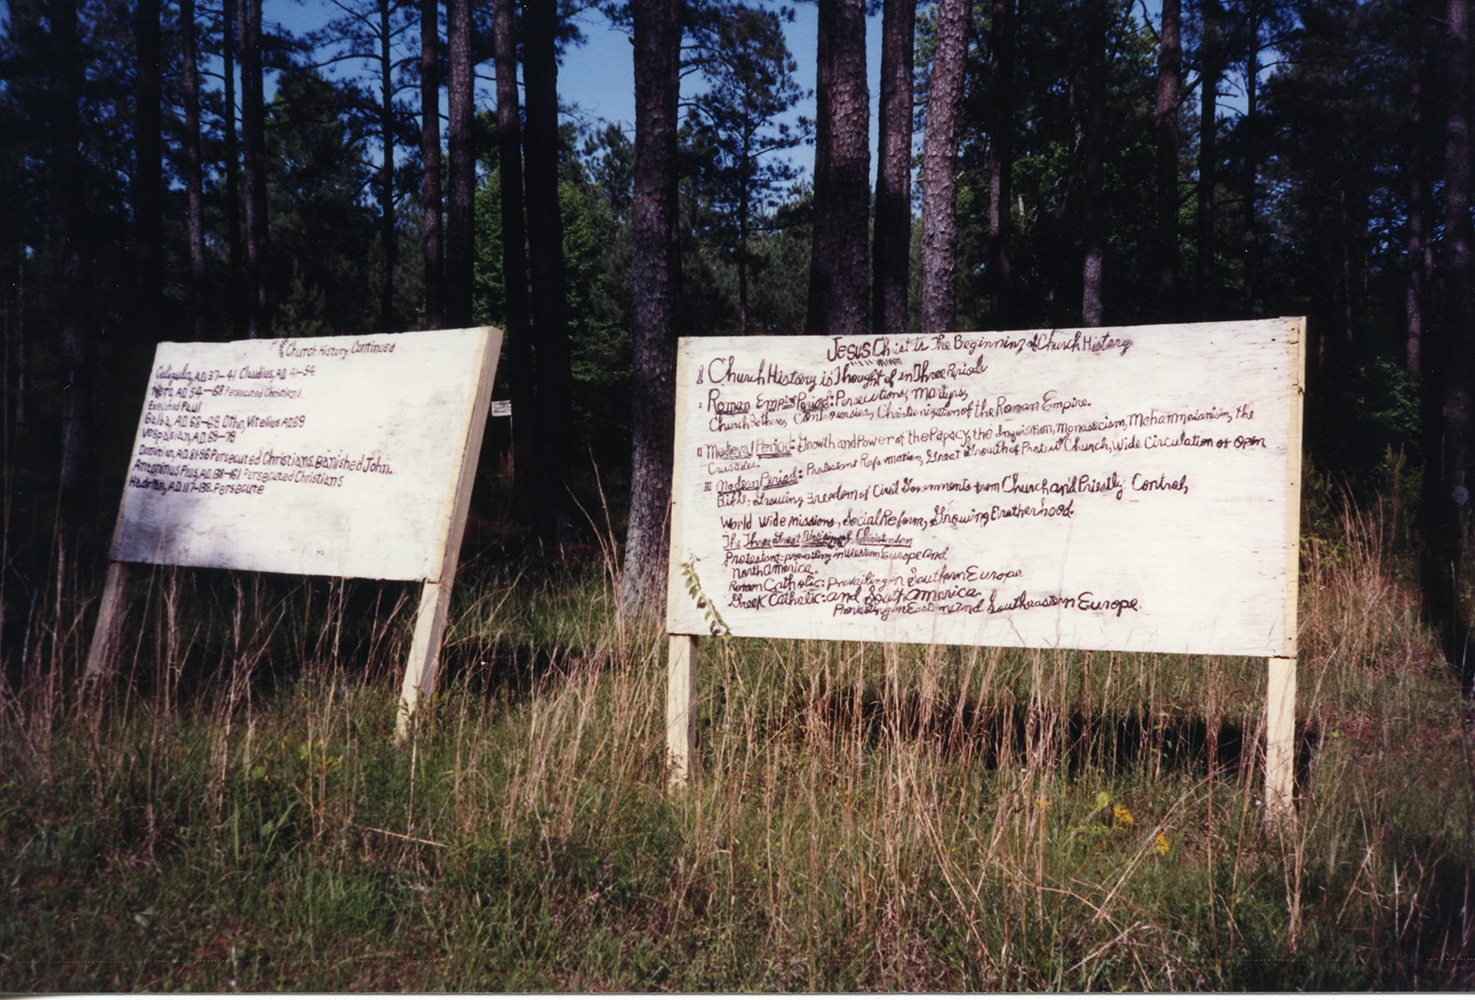 Church History Continued
Caligula, A.D. 37-41 Claudius, A.D. 41-54
Nero, A.D. 54-68 Persecuted Christians.
Executed Paul
Galba, A.D. 68-69, Otho, Vitelius AD69
Vespasian, A.D. 69-79
Domitian, A.D. Persecuted Christians. Banished John.
Antoninus Pius, A.D. 138-161 Persecuted Christians
Hadrian, A.D. 117-138. Persecute
Jesus Christ is The Beginning of Church History
Church History is Thought of in Three Periods
I Roman Empire Period: Persecutions, Martyrs,
Church Fathers, Controversies, Christianization of the Roman Empire.
II Medieval Period: Growth and Power of the Papacy, the Inquisition, Monasticism, Mohammedanism, the
Crusades.
III Modern Period: Protestant Reformation, Great Growth of Protest Church, Wide Circulation of Open
Bible: Growing Freedom of Civil Governments from Church and Priestly Control,
World Wide missions, Social Reform, Growing Brotherhood.
The Three Great of Christendom
Protestant: prevailing in Western Europe and
North America.
Roman Catholic: Prevailing in Southern Europe
Greek Catholic: and South America.
Prevailing in Eastern and Southeastern Europe.